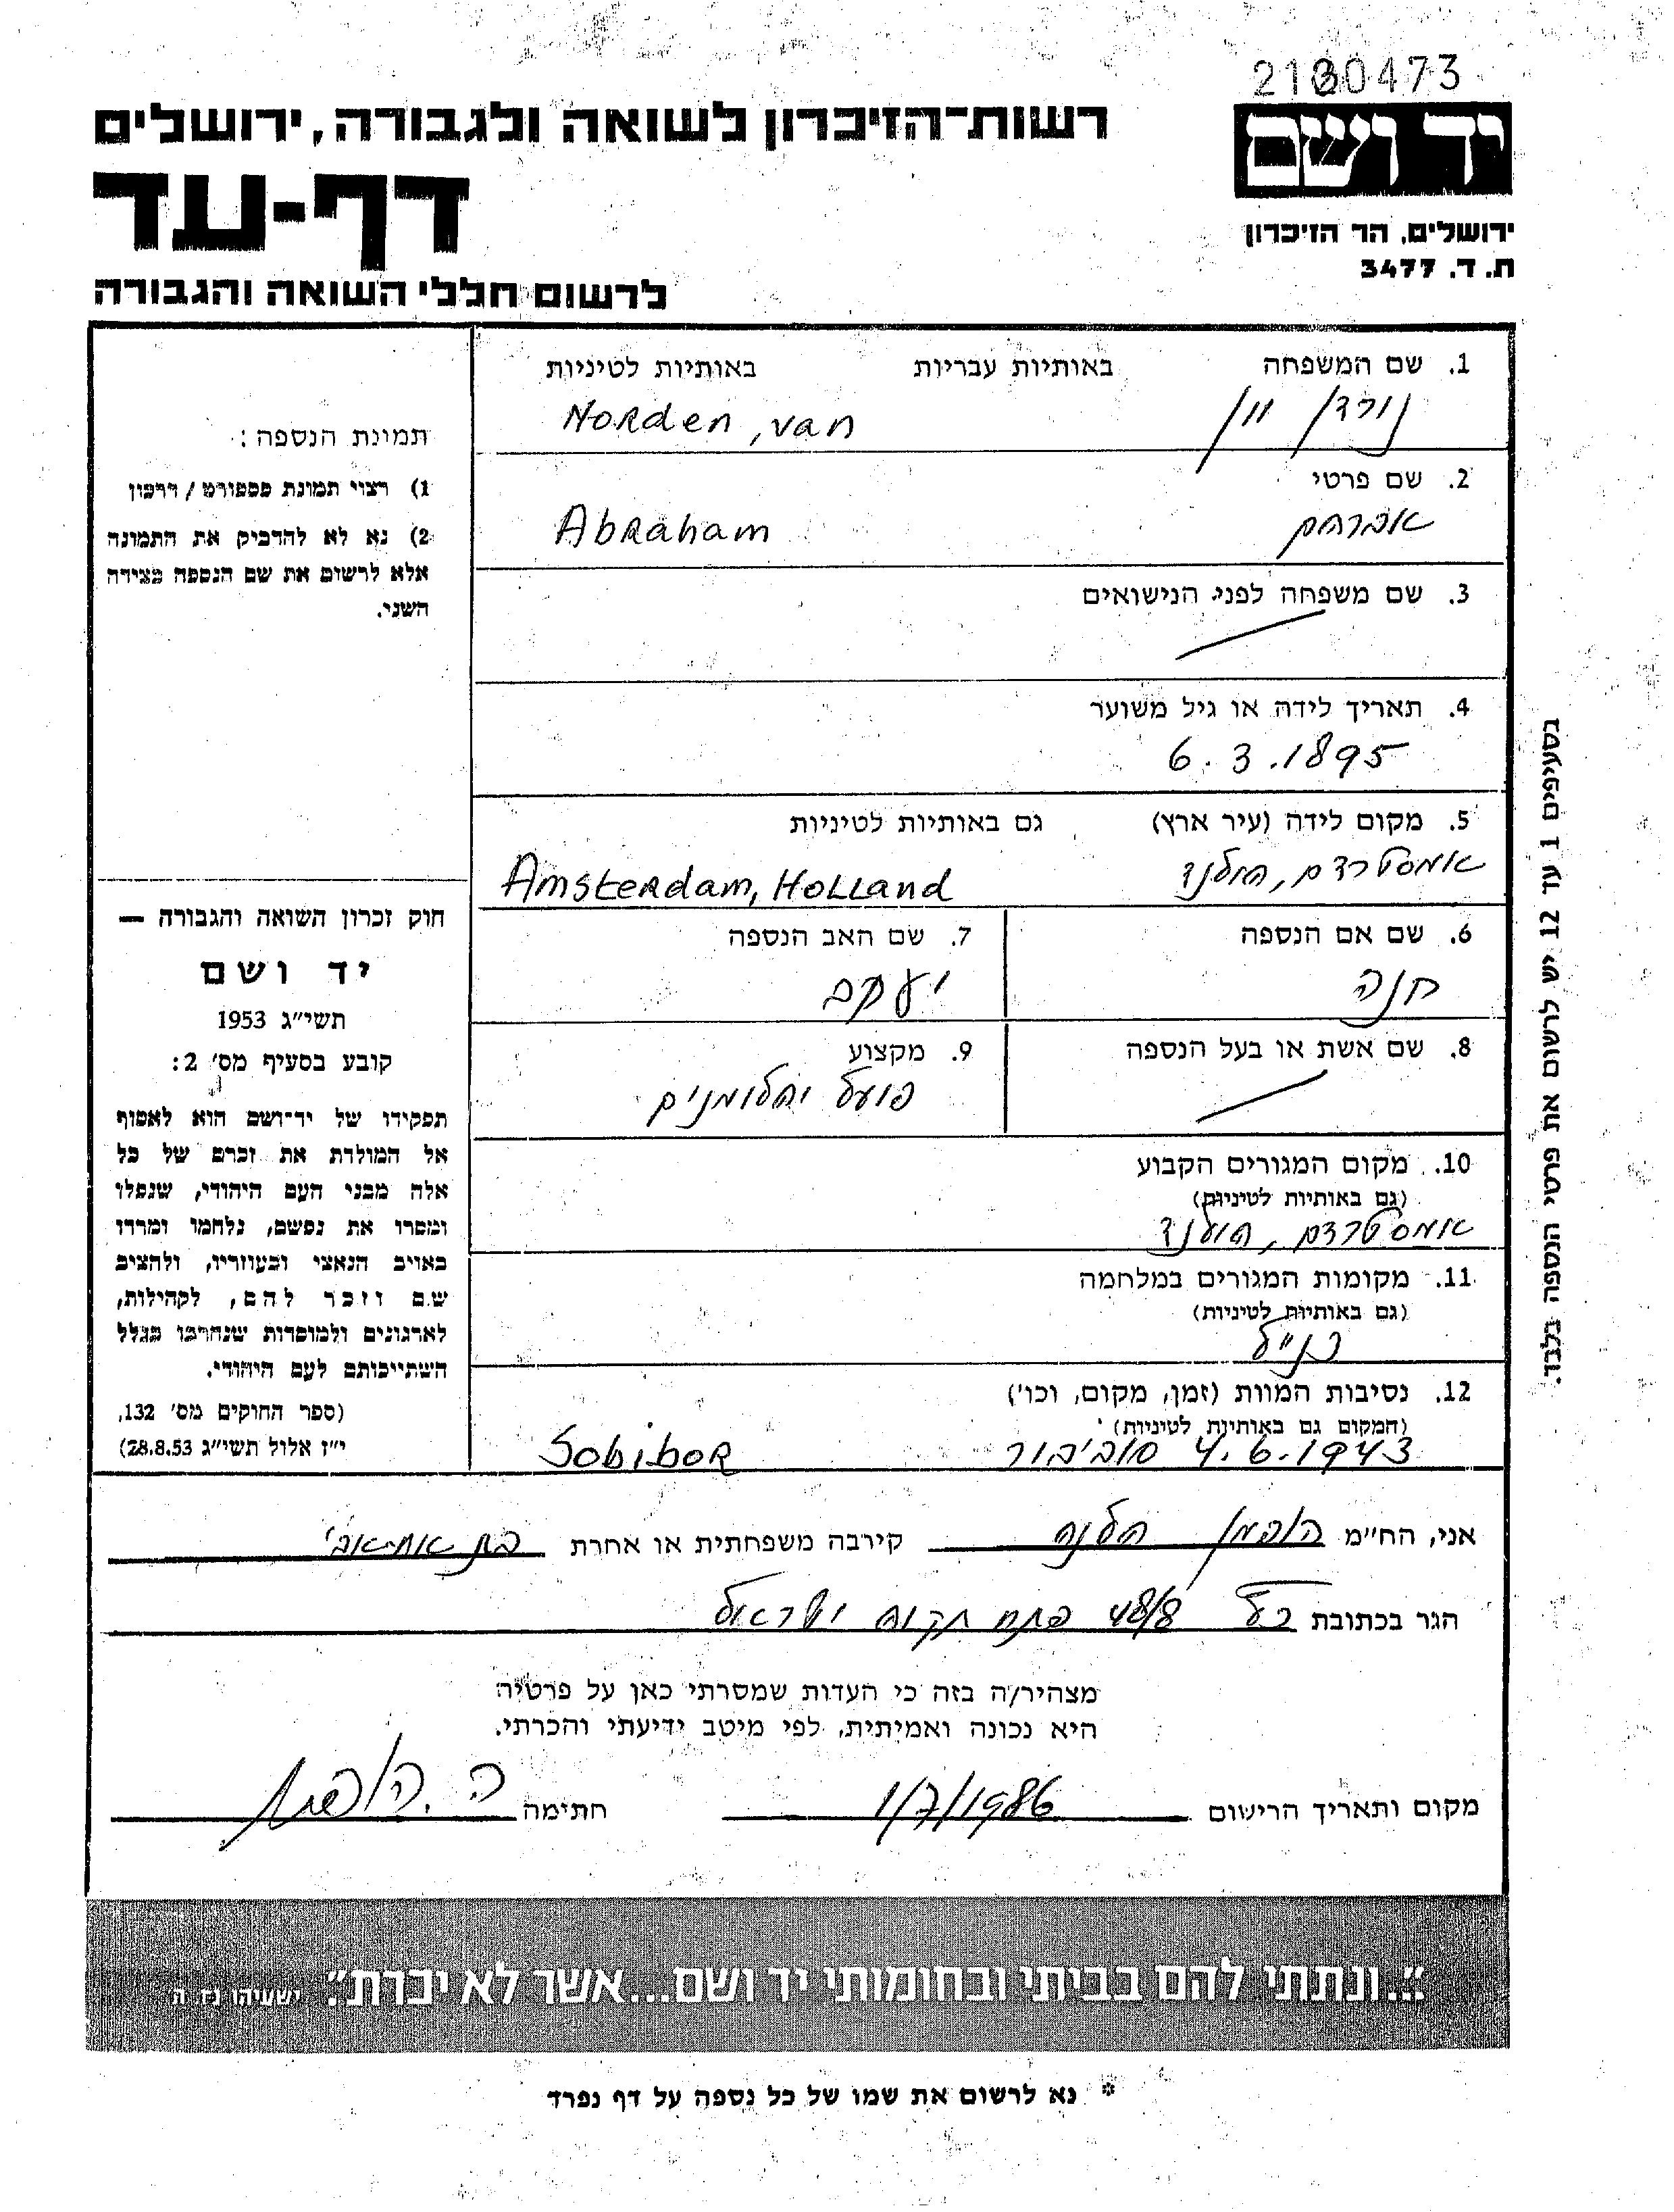 2130473
יד ושם
רשות־הזיכרון לשואה ולגבורה, ירושלים
דף-עד
ירושלים, הר הזיכרון
ת. ד. 3477
לרשום חללי השואה והגבורה
1. שם המשפחה באותיות עבריות באותיות לטיניות
נורדן ון Norden, van
2. שם פרטי
אברהם Abraham
3. שם משפחה לפני הנישואים
4. תאריך לידה או גיל משוער
6.3.1895
5. מקום לידה (עיר ארץ) גם באותיות לטיניות
אמסטרדם, הולנד Amsterdam, Holland
6. שם אם הנספה
חנה
7. שם האב הנספה
יעקב
8. שם אשת או בעל הנספה
9. מקצוע
פועל יהלומנים
10. מקום המגורים הקבוע
(גם באותיות לטיניות)
אמסטרדם, הולנד
11. מקומות המגורים במלחמה
(גם באותיות לטיניות)
כנ״ל
12. נסיבות המוות (זמן, מקום, וכו')
(המקום גם באותיות לטיניות)
4.6.1943 סוביבור Sobibor
תמונת הנספה:
1) רצוי תמונת פספורט / דרכון
2) נא לא להדביק את התמונה
אלא לרשום את שם הנספה בצידה
השני.
חוק זכרון השואה והגבורה —
יד ושם
תשי״ג 1953
קובע בסעיף מס' 2:
תפקידו של יד־ושם הוא לאסוף
אל המולדת את זכרם של כל
אלה מבני העם היהודי, שנפלו
ומסרו את נפשם, נלחמו ומרדו
באויב הנאצי ובעוזריו, ולהציב
שם וזכר להם, לקהילות,
לארגונים ולמוסדות שנחרבו בגלל
השתייכותם לעם היהודי.
(ספר החוקים מס' 132,
י״ז אלול תשי״ג 28.8.53)
בסעיפים 1 עד 12 יש לרשום את פרטי הנספה בלבד.
אני, הח״מ הופמן הלנה קירבה משפחתית או אחרת בת אחי אבי
הגר בכתובת 48/8 פתח תקוה ישראל
מצהיר/ה בזה כי העדות שמסרתי כאן על פרטיה
היא נכונה ואמיתית, לפי מיטב ידיעתי והכרתי.
מקום ותאריך הרישום 1/7/1986 חתימה ה. הופמן
״...ונתתי להם בביתי ובחומותי יד ושם...אשר לא יכרת״. ישעיהו נו ה
* נא לרשום את שמו של כל נספה על דף נפרד